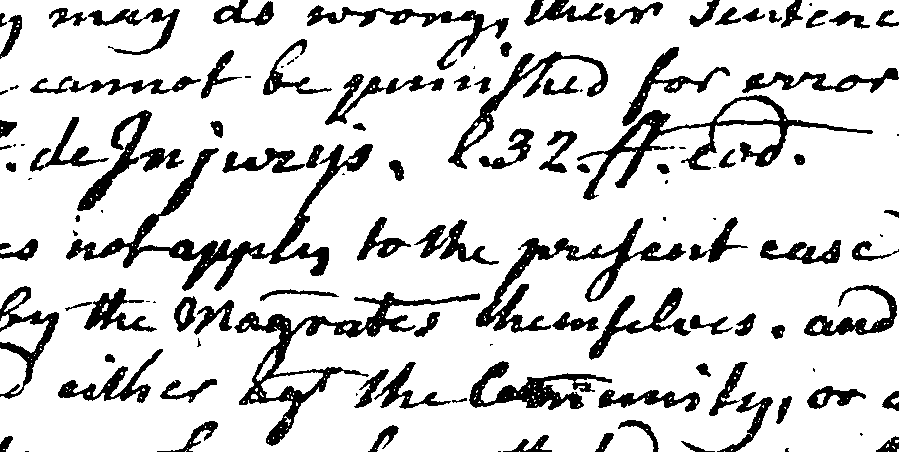 may do wrong, their Sentenc
cannot be punished for error
. de Injurijs. l. 32. ff. eod.
es not apply to the present case
by the Magrates themselves. and
either agt the Community, or